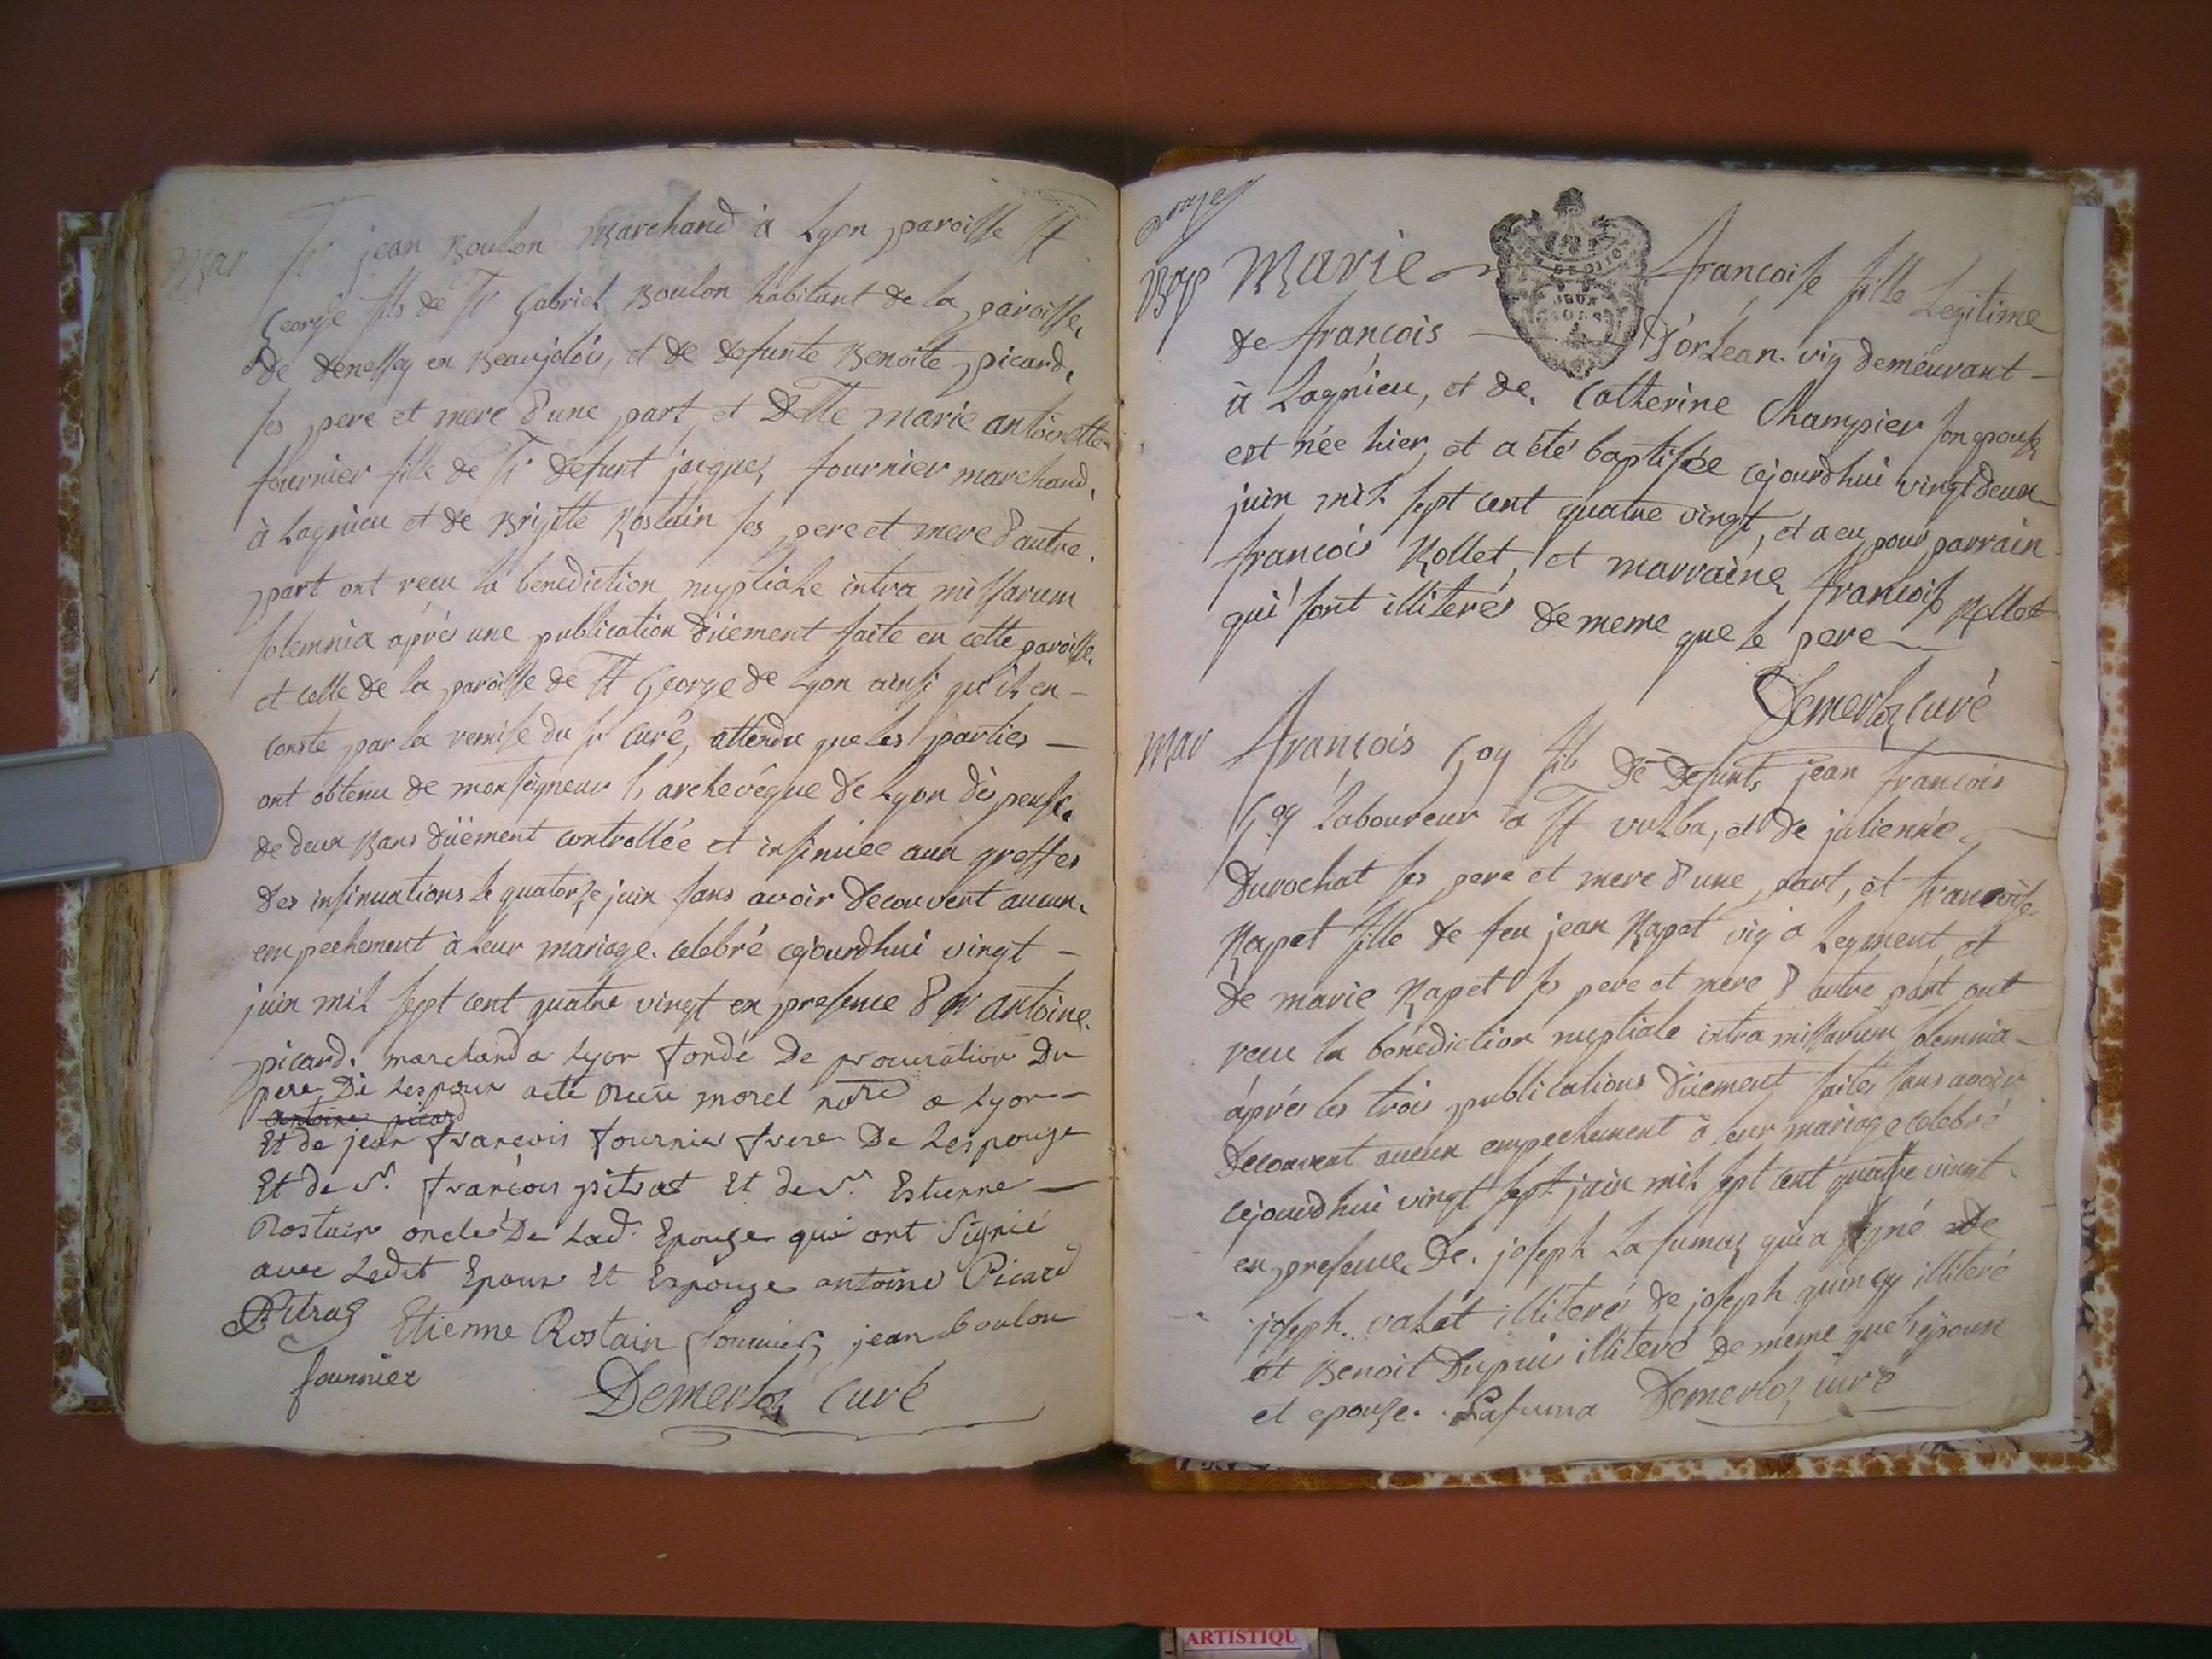 Mar Sr jean Boulon Marchand à Lyon paroisse St
George fils de Sr Gabriel Boulon habitant de la paroisse
de denessy en Beaujolois, et de defunte Benoite picard,
ses pere et mere d'une part et Delle marie antoinette
fournier fille de Sr defunt jaques fournier marchand,
à Lagnieu et de Brigitte Rostain ses pere et mere d'autre
part ont recu la benediction nuptiale intra missarum
solemnia aprés une publication düement faite en cette paroisse
et celle de la paroisse de St George de Lyon ainsi qu'il en -
conste par la remise du sr curé, attendu que les parties -
ont obtenu de monseigneur l'archevêque de Lyon dispense
de deux Bans düement controllée et insinuée aux greffes
des insinuations le quatorze juin sans avoir decouvert aucun
empechement à leur mariage celebré cejourdhui vingt -
juin mil sept cent quatre vingt en presence de sr antoine
picard. marchand a Lyon fondé De procuration Du
pere De Lespoux acte Recu morel notre a Lyon -
antoine picard
Et de jean françois fournier frere De Lespouze
Et de Sr. françois pitrat Et de Sr. Estienne -
Rostain oncle De Lad. Epouze qui ont Signié
avec Ledit Epoux Et Espouze antoine Picard
Pitrat Etienne Rostain fournier jean boulon
fournier
Demerloz curé
Bap Marie françoise fille Legitime
de françois D'orlean vig demeurant -
à Lagnieu, et de Catherine Champier son epouse
est née hier, et a été baptisée cejourdhui vingt deux
juin mil sept cent quatre vingt, et a eu pour parrain
francois Rollet, et marraine francoise Rollet
qui sont illiterés de meme que le pere
Demerloz curé
Mar françois Goy fils de defunts jean francois
Goy Laboureur à St vulba, et de julienne
Durochat ses pere et mere d'une part, et francoise
Rapet fille de feu jean Rapet vig à Leyment et
de marie Rapet ses pere et mere d'autre part ont
recu la benediction nuptiale intra missarum solemnia -
áprés les trois publications düement faites sans avoir
decouvert aucun empechement à leur mariage celebré
cejourdhui vingt sept juin mil sept cent quatre vingt
en presence De joseph Lafumaz qui a signé De
joseph valet illiteré de joseph quincy illiteré
et Benoit Dupui illiteré de meme que l'epoux
et epouse. Lafuma Demerloz curé
ARTISTIQU